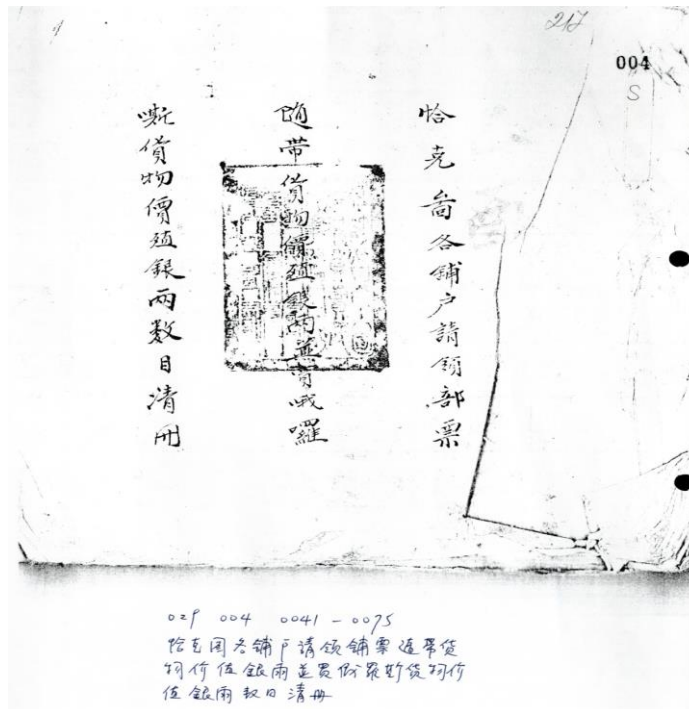 217
004
S
恰克啚各鋪户請領部票
隨带貨物價殖銀兩並買哦囉
嘶貨物價殖銀兩数目清冊
029 004 0041-0075
恰克图各鋪户請领鋪票随带货
物价值銀兩並買俄羅斯货物价
值銀兩数目清冊